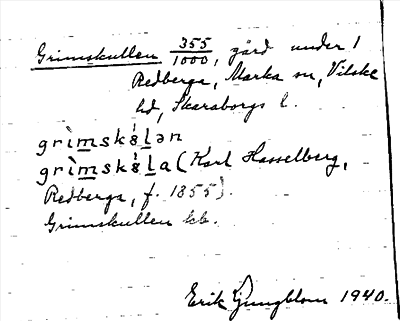 Grimskullen 355/1000, gård under 1
Redberga, Marka sn, Vilske
hd, Skaraborgs l.
grìmskə́lən
grìmskə́la (Karl Hasselberg,
Redberga, f. 1855).
Grimskullen kb.
Erik Ljungblom 1940.